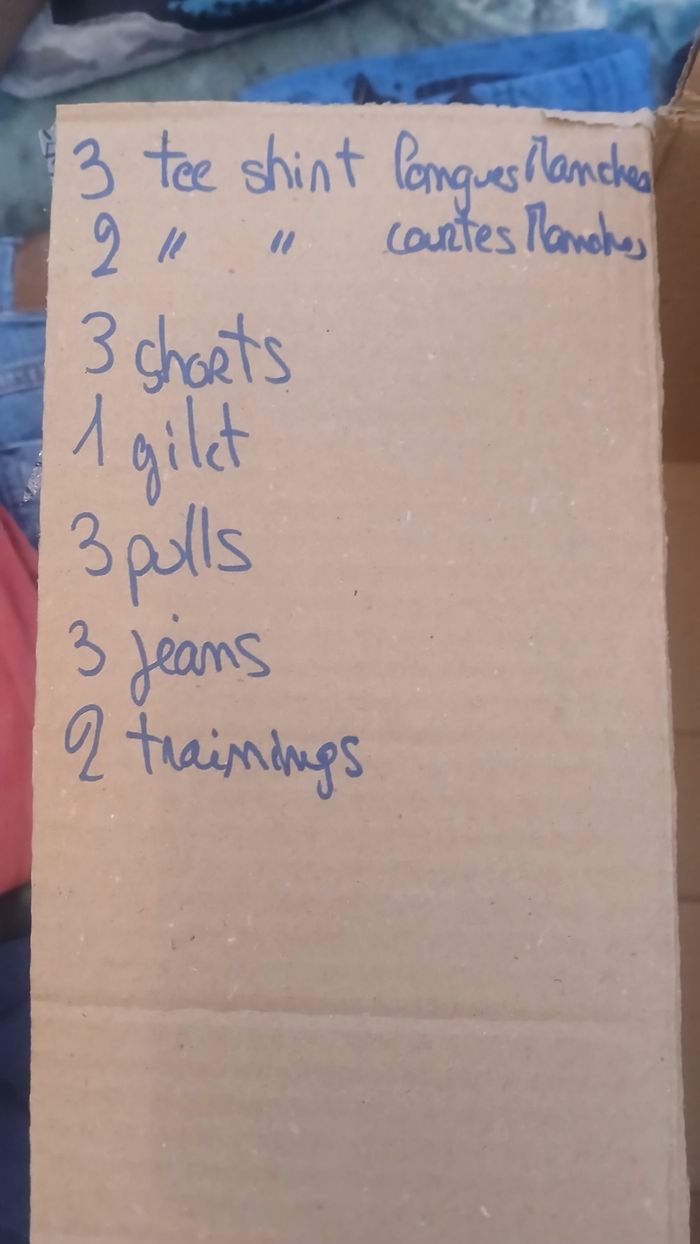 3 tee shirt longues Manches
2 " " courtes Manches
3 shorts
1 gilet
3 pulls
3 jeans
2 trainings